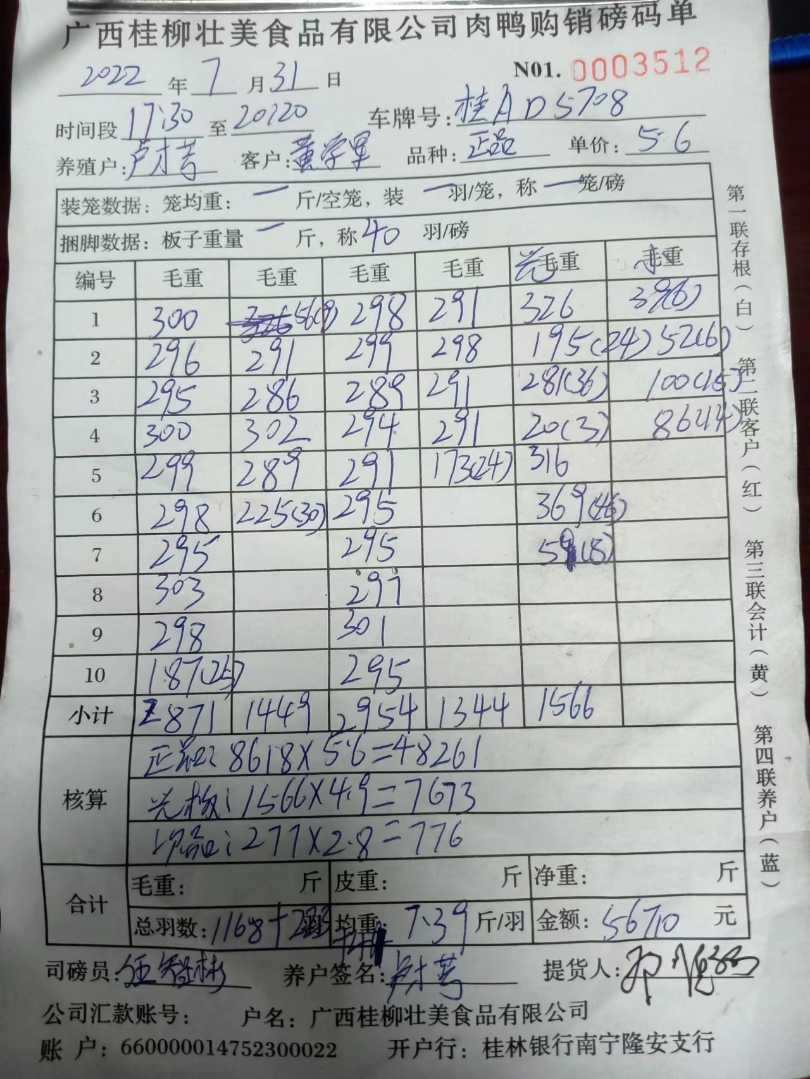 广西桂柳壮美食品有限公司肉鸭购销磅码单
2022 年 7 月 31 日 N01. 0003512
时间段 17:30 至 20:20 车牌号: 桂AD5708
养殖户: 卢才芳 客户: 黄学军 品种: 正品 单价: 5.6
装笼数据: 笼均重: 一 斤/空笼, 装 一 羽/笼, 称 一 笼/磅
捆脚数据: 板子重量 一 斤, 称 40 羽/磅
编号 毛重 毛重 毛重 毛重 光毛重 毛重
1 300 56(9) 298 291 326 39(6)
2 296 291 299 298 195(24) 52(6)
3 295 286 289 291 281(36) 100(15)
4 300 302 294 291 20(3) 86(14)
5 299 289 291 173(24) 316
6 298 225(30) 295 369(46)
7 295 295 59(8)
8 303 297
9 298 301
10 187(25) 295
小计 2871 1449 2954 1344 1566
核算 正品: 8618×5.6=48261
1566×4.9=7673
次品: 277×2.8=776
合计 毛重: 斤 皮重: 斤 净重: 斤
总羽数: 1168+ 羽 均重: 7.39 斤/羽 金额: 56710 元
司磅员: 养户签名: 卢才芳 提货人:
公司汇款账号: 户名: 广西桂柳壮美食品有限公司
账 户: 660000014752300022 开户行: 桂林银行南宁隆安支行
第一联存根(白) 第二联客户(红) 第三联会计(黄) 第四联养户(蓝)